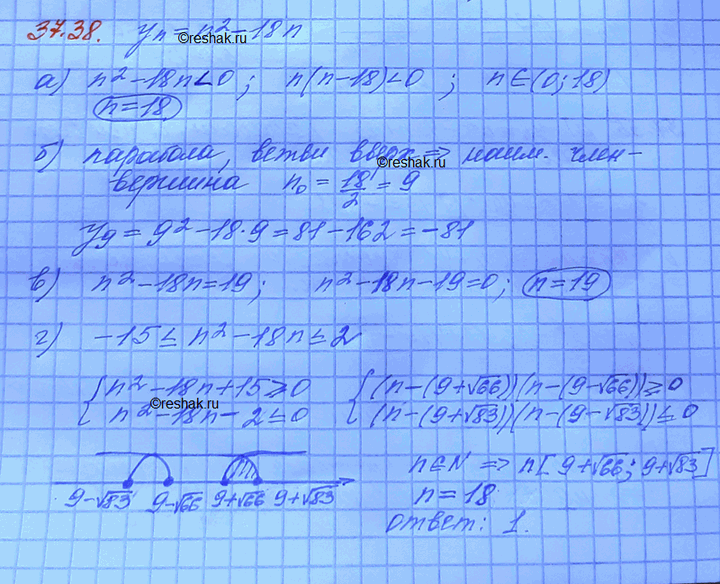 37.38. yₙ = n² - 18n
©reshak.ru
а) n² - 18n < 0 ; n(n-18) < 0 ; n ∈ (0; 18)
n = 18
б) парабола, ветви вверх ⇒ наим. член -
©reshak.ru
вершина n₀ = 18/2 = 9
y₉ = 9² - 18·9 = 81 - 162 = -81
в) n² - 18n = 19 ; n² - 18n - 19 = 0 ; n = 19
г) -15 ≤ n² - 18n ≤ 2
{ n² - 18n + 15 ≥ 0 { (n-(9+√66))(n-(9-√66)) ≥ 0
n² - 18n - 2 ≤ 0 (n-(9+√83))(n-(9-√83)) ≤ 0
©reshak.ru
n ∈ N ⇒ n [9+√66; 9+√83]
9-√83 9-√66 9+√66 9+√83
n = 18
ответ: 1.